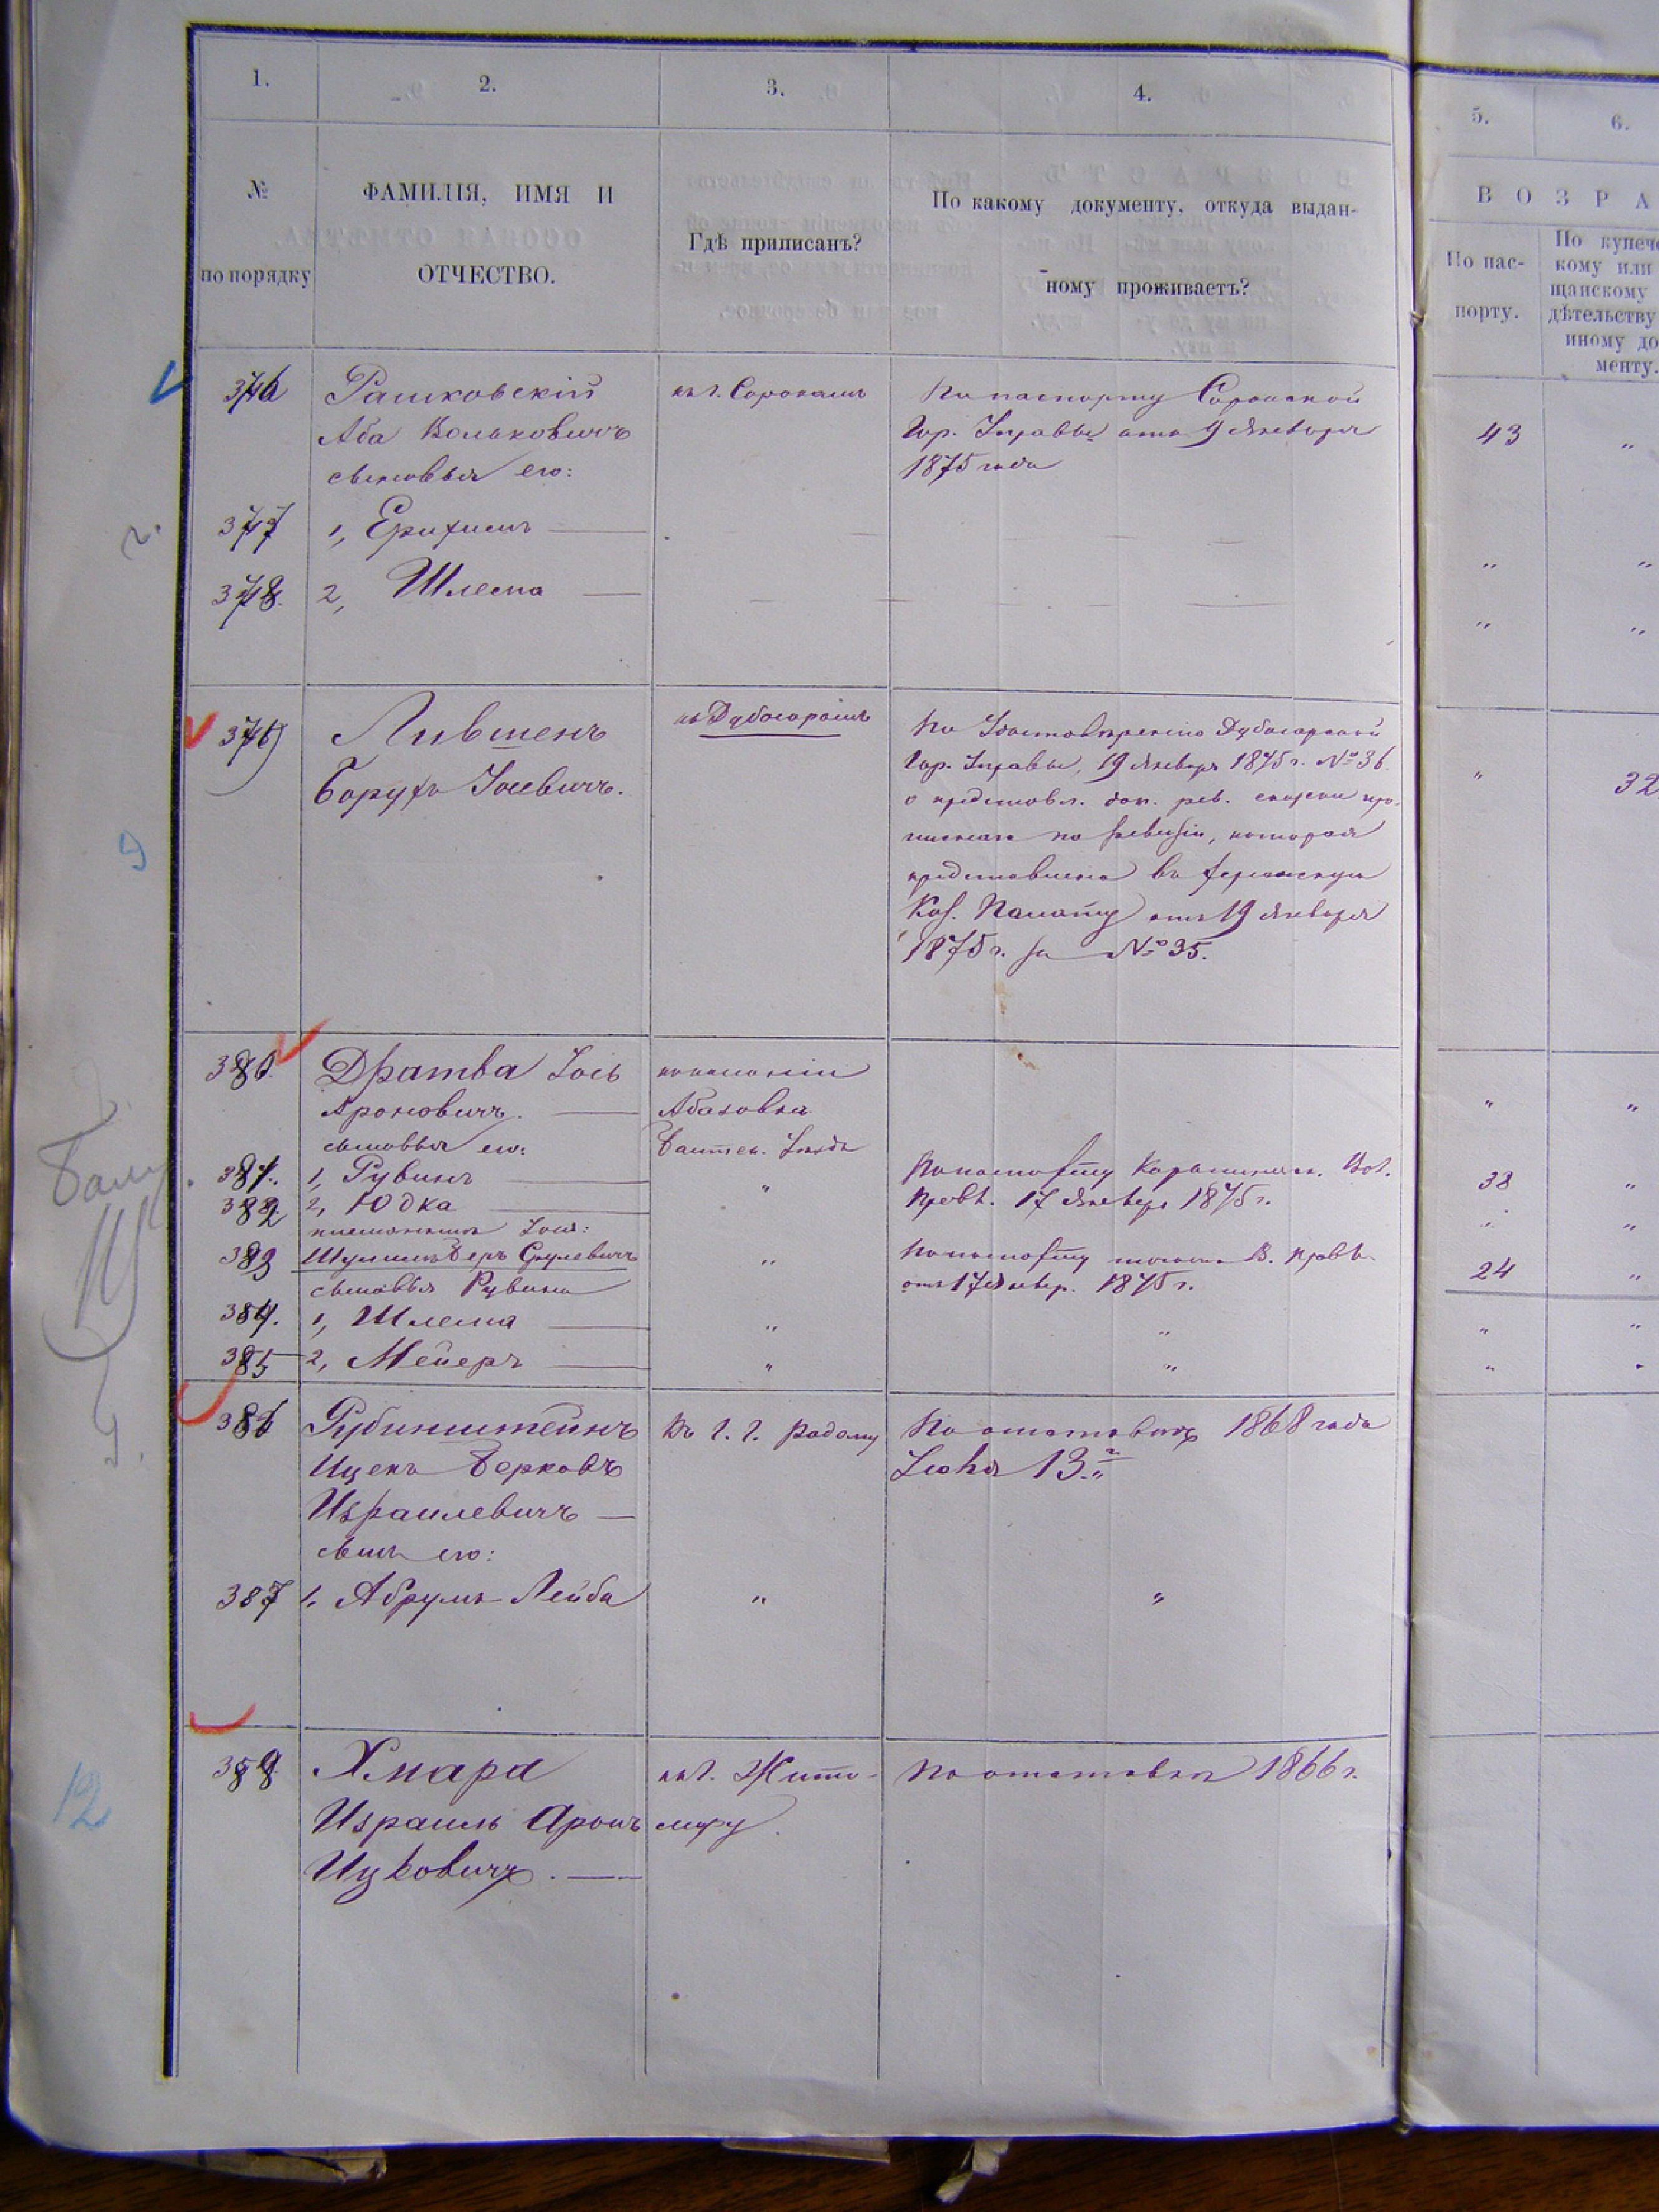 1.
2.
3.
4.
5.
6.
№
по порядку
ФАМИЛІЯ, ИМЯ И
ОТЧЕСТВО.
Гдѣ приписанъ?
По какому документу, откуда выдан-
ному проживаетъ?
ВОЗРА
По пас-
порту.
По купече
кому или
щанскому
дѣтельству
иному до
менту.
376 Рашковскій къ г. Сорокамъ По паспорту Сорокской
Аба Вольковичъ Гор. Управы отъ 9 Января 43 "
сыновья его: 1875 года
377 1, — " "
378. 2, Шлема — " "
379 Лившенъ къ Дубосарамъ По Удостовѣренію Дубосарской
Борухъ Іосевичъ. Гор. Управы, 19 Января 1875 г. № 36. " 32
о представл. доп. рев. сказки
по ревизіи, которая
представлена въ Херсонскую
Каз. Палату отъ 19 Января
1875 г. за № 35.
380. Дратва Іось колоніи
Ароновичъ. — Абазовка " "
сыновья его: Балтск. Уѣзда
381. 1, Рувинъ — " По паспорту Вол. 38 "
382 2, Юдка — Правл. 17 Января 1875 г. " "
племянникъ Іося:
383 Шулимъ Беръ Срулевичъ " По паспорту В. Правл. 24 "
сыновья Рувина отъ 17 Январ. 1875 г.
384. 1, Шлема — " " " "
385 2, Мейеръ — " " " "
386 Рубинштейнъ Въ г. г. Радому По отставкѣ 1868 года
Ицекъ Берковъ 13.
Израилевичъ —
сынъ его:
387 1. Абрумъ Лейба " "
388 Хмара къ г. Жито- По отставкѣ 1866 г.
Израиль Аронъ миру.
Ицковичъ. —
9
12